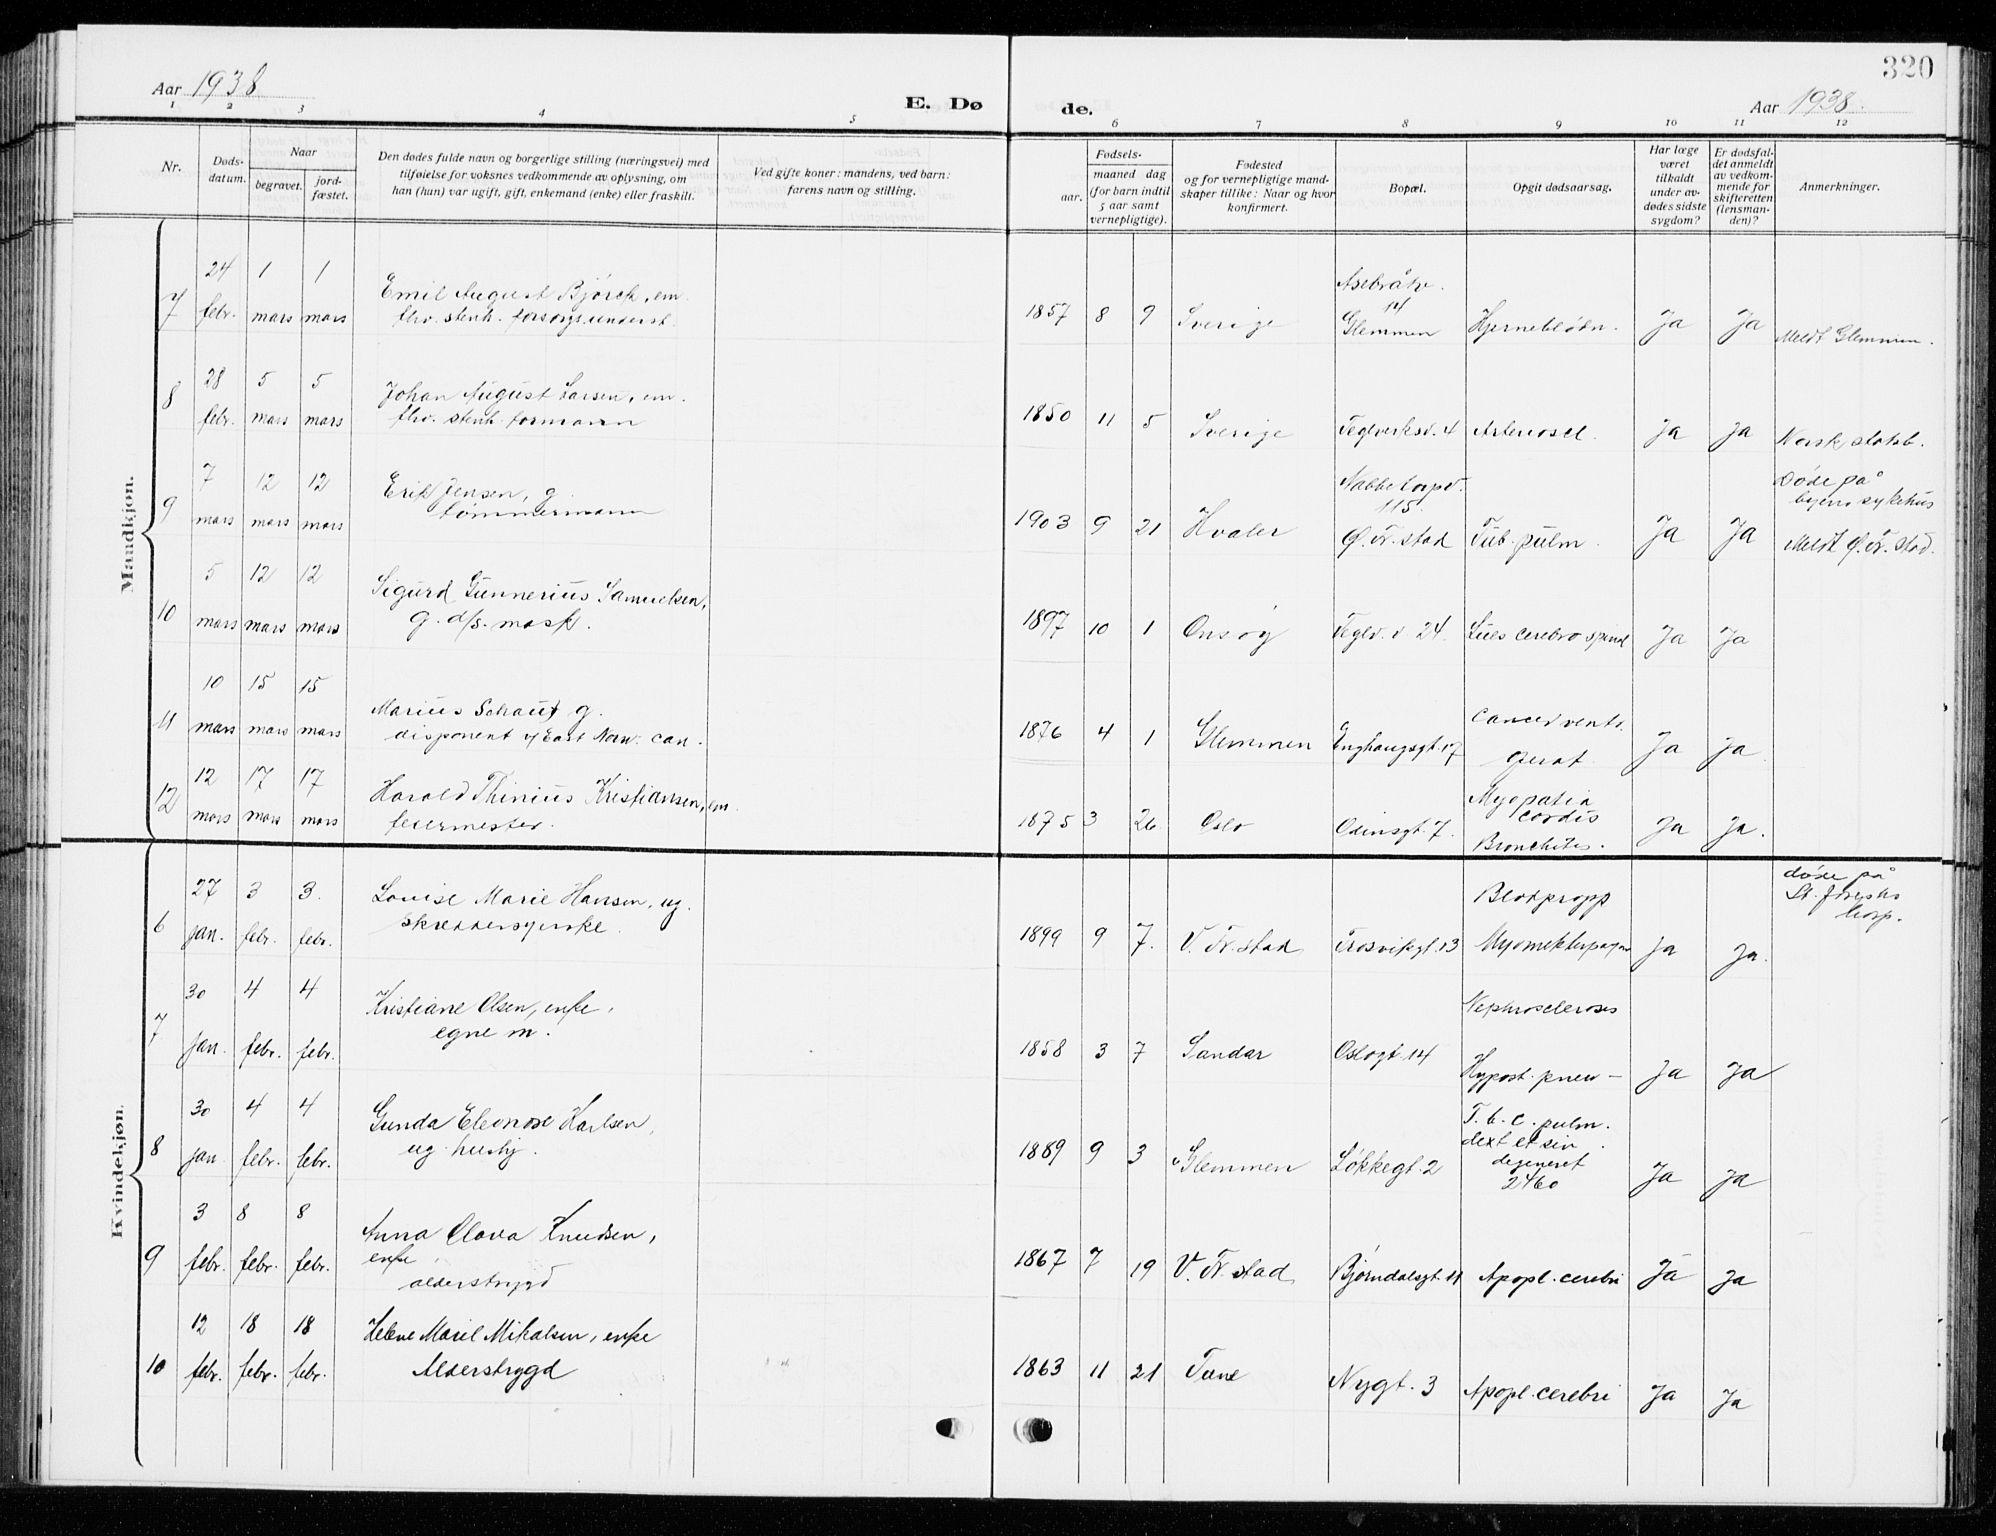 320
Aar 1938
E. Dø
de.
Aar 1938.
1 2 3 4 5 6 7 8 9 10 11 12
Nr.
Døds-
datum.
Naar
begravet.
jord-
fæstet.
Den dødes fulde navn og borgerlige stilling (næringsvei) med
tilføielse for voksnes vedkommende av oplysning, om
han (hun) var ugift, gift, enkemand (enke) eller fraskilt.
Ved gifte koner: mandens, ved barn:
farens navn og stilling.
Fødsels-
aar.
maaned dag
(for barn indtil
5 aar samt
vernepligtige).
Fødested
og for vernepligtige mand-
skaper tillike: Naar og hvor
konfirmert.
Bopæl.
Opgit dødsaarsag.
Har læge
været
tilkaldt
under av-
dødes sidste
sygdom?
Er dødsfal-
det anmeldt
av vedkom-
mende for
skifteretten
(lensman-
den)?
Anmerkninger.
Mandkjøn.
24 1 1
7 febr. mars mars
Emil August Björck, em.
fhv. stenh. forsorgsunderst.
1857 8 9 Sverige
Glemmen
Hjerneblødn. Ja Ja Meldt Glemmen.
28 5 5
8 febr. mars mars
Johan August Larsen, em.
fhv. stenh. formann
1850 11 5 Sverige Teglverksv. 4 Arterioscl. Ja Ja Norsk statsb.
7 12 12
9 mars mars mars
Erik Jensen, g.
tømmermann
1903 9 21 Hvaler
Nabbetorpv.
115.
Ø. Fr. stad Tub. pulm. Ja Ja
Døde på
byens sykehus
Meldt Ø. Fr. stad.
5 12 12
10 mars mars mars
Sigurd Gunnerius Samuelsen,
g. d/s. mask.
1897 10 1 Onsøy Teglv. v 24. Lues cerebro spinal Ja Ja
10 15 15
11 mars mars mars
Marius Schaug g.
disponent v/ East Norw. can.
1876 4 1 Glemmen Enghaugsgt. 17
Cancer ventr.
operat. Ja Ja
12 17 17
12 mars mars mars
Harald Thinius Kristiansen, em.
feiermester.
1875 3 26 Oslo Odinsgt. 7.
Myopatia
cordis
Bronchites. Ja Ja.
Kvindekjøn.
27 3 3.
6 jan. febr. febr.
Louise Marie Hansen, ug.
skreddersyerske.
1899 9 7. V. Fr. stad Trosvikgt. 13
Blodpropp
Ja Ja.
døde på
St. Josephs
hosp.
30 4 4
7 jan. febr. febr.
Kristiane Olsen, enke,
egne m.
1858 3 7 Sandar Oslogt. 14
Nephroscleroses
Hypost. pneu – Ja Ja
30 4 4
8 jan febr. febr.
Gunda Eleonore Karlsen,
ug. hushj.
1889 9 3 Glemmen Løkkegt. 2
T. b. c. pulm.
dext et sin.
degeneret
2460 Ja Ja
3 8 8
9 febr. febr. febr.
Anna Olava Knudsen,
enke
alderstrygd
1867 7 19 V. Fr. stad Bjørndalsgt. 11 Apopl. cerebri Ja Ja
12 18 18
10 febr. febr. febr.
Helene Marie Mikalsen, enke
Alderstrygd
1863 11 21 Tune Nygt. 3 Apopl. cerebri Ja Ja